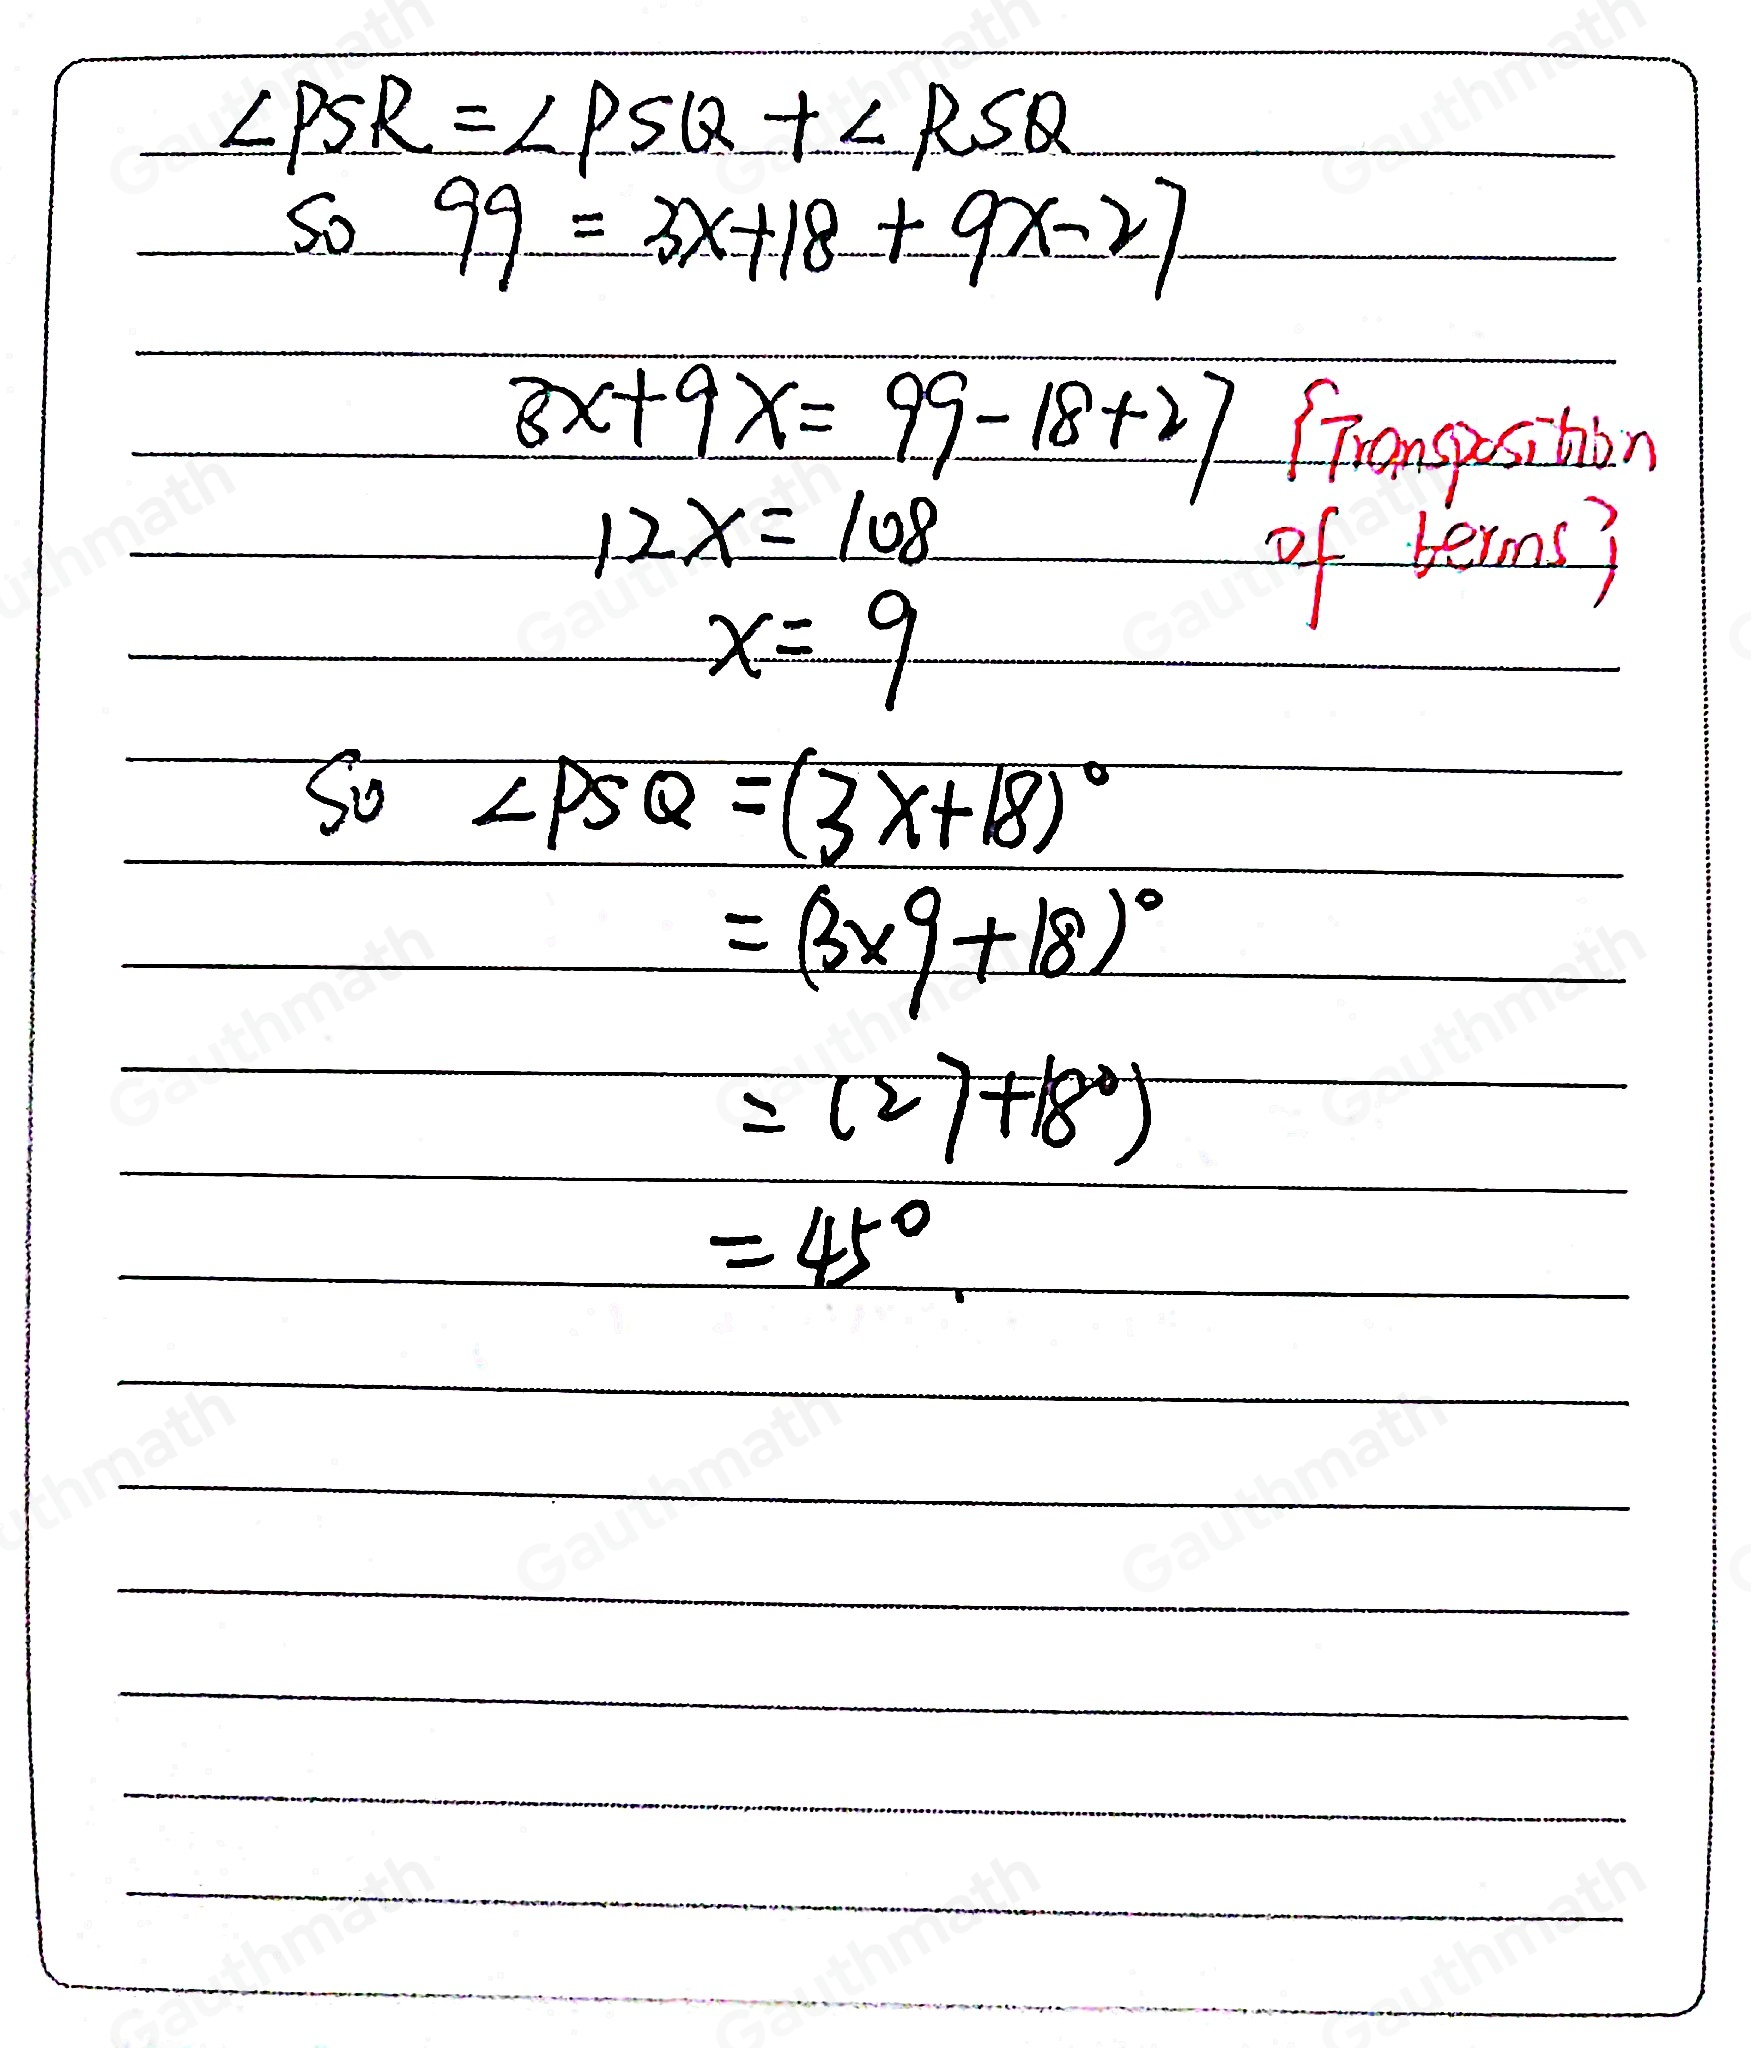 ∠PSR = ∠PSQ + ∠RSQ
So 99 = 3x+18 + 9x-27
3x+9x = 99-18+27 {Transposition
of terms}
12x = 108
x = 9
So ∠PSQ = (3x+18)°
= (3×9+18)°
= (27+18°)
= 45°
Gauthmath